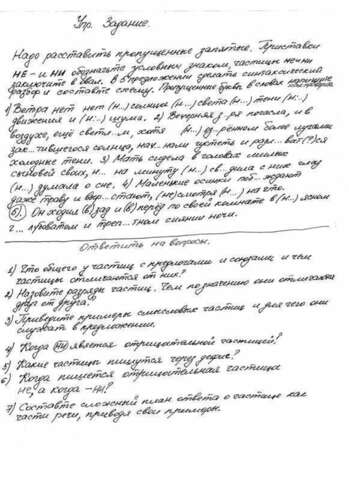 Упр. Задание.
Надо расставить пропущенные запятые. Приставки
НЕ- и НИ обозначьте условным знаком, частицы не-ни
заключите в овал. В 5 предложении сделать синтаксический
разбор и составьте схему. Пропущенные буквы в словах
1) Ветра нет нет (н..) солнца (н..) света (н..) тени (н..)
движения и (н..) шума. 2) Вечерняя з..ря погасла, и в
воздухе, ещё светл..м, хотя (н..) оз..рённом более лучами
зак..тившегося солнца, нач..нали густеть и разл..ват(?)ся
холодные тени. 3) Мать сидела в головах
сыновей своих, н.. на минуту (н..) св..дила с них глаз
(н..) думала о сне. 4) Маленькие осинки поб..ждают
даже траву и выр..стают, (не)смотря (н..) на что.
5). Он ходил (в)зад и (в)перёд по своей комнате в (н..) ясном
г..луповатом и треп..тном сиянии ночи.
Ответить на вопросы.
1) Что общего у частиц с предлогами и союзами и чем
частицы отличаются от них?
2) Назовите разряды частиц. Чем по значению они отличаются
друг от друга?
3) Приведите примеры смысловых частиц и для чего они
служат в предложении.
4) Когда ни является отрицательной частицей?
5) Какие частицы пишутся через дефис?
6) Когда пишется отрицательная частица
не, а когда – ни?
7) Составьте сложный план ответа о частице как
части речи, приводя свои примеры.